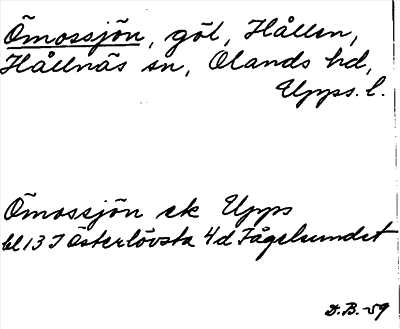 Ömossjön, göl, Hållen,
Hållnäs sn, Olands hd,
Upps. l.
Ömossjön ek Upps
bl 13 I Österlövsta 4 d Fågelsundet
D.B. -59